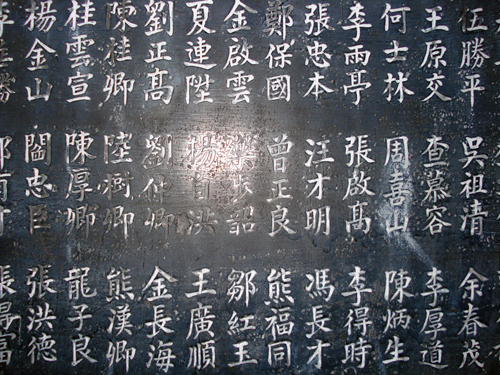 伍勝平
王原交
何士林
李雨亭
張忠本
鄭保國
金啟雲
夏連陞
劉正高
陳桂卿
桂雲宣
楊金山
吳祖清
查慕容
周喜山
張啟高
汪才明
曾正良
韶
洪
劉仲卿
陸樹卿
陳厚卿
閻忠臣
余春茂
李厚道
陳炳生
李得時
馮長才
熊福同
鄒紅玉
王廣順
金長海
熊漢卿
龍子良
張洪德